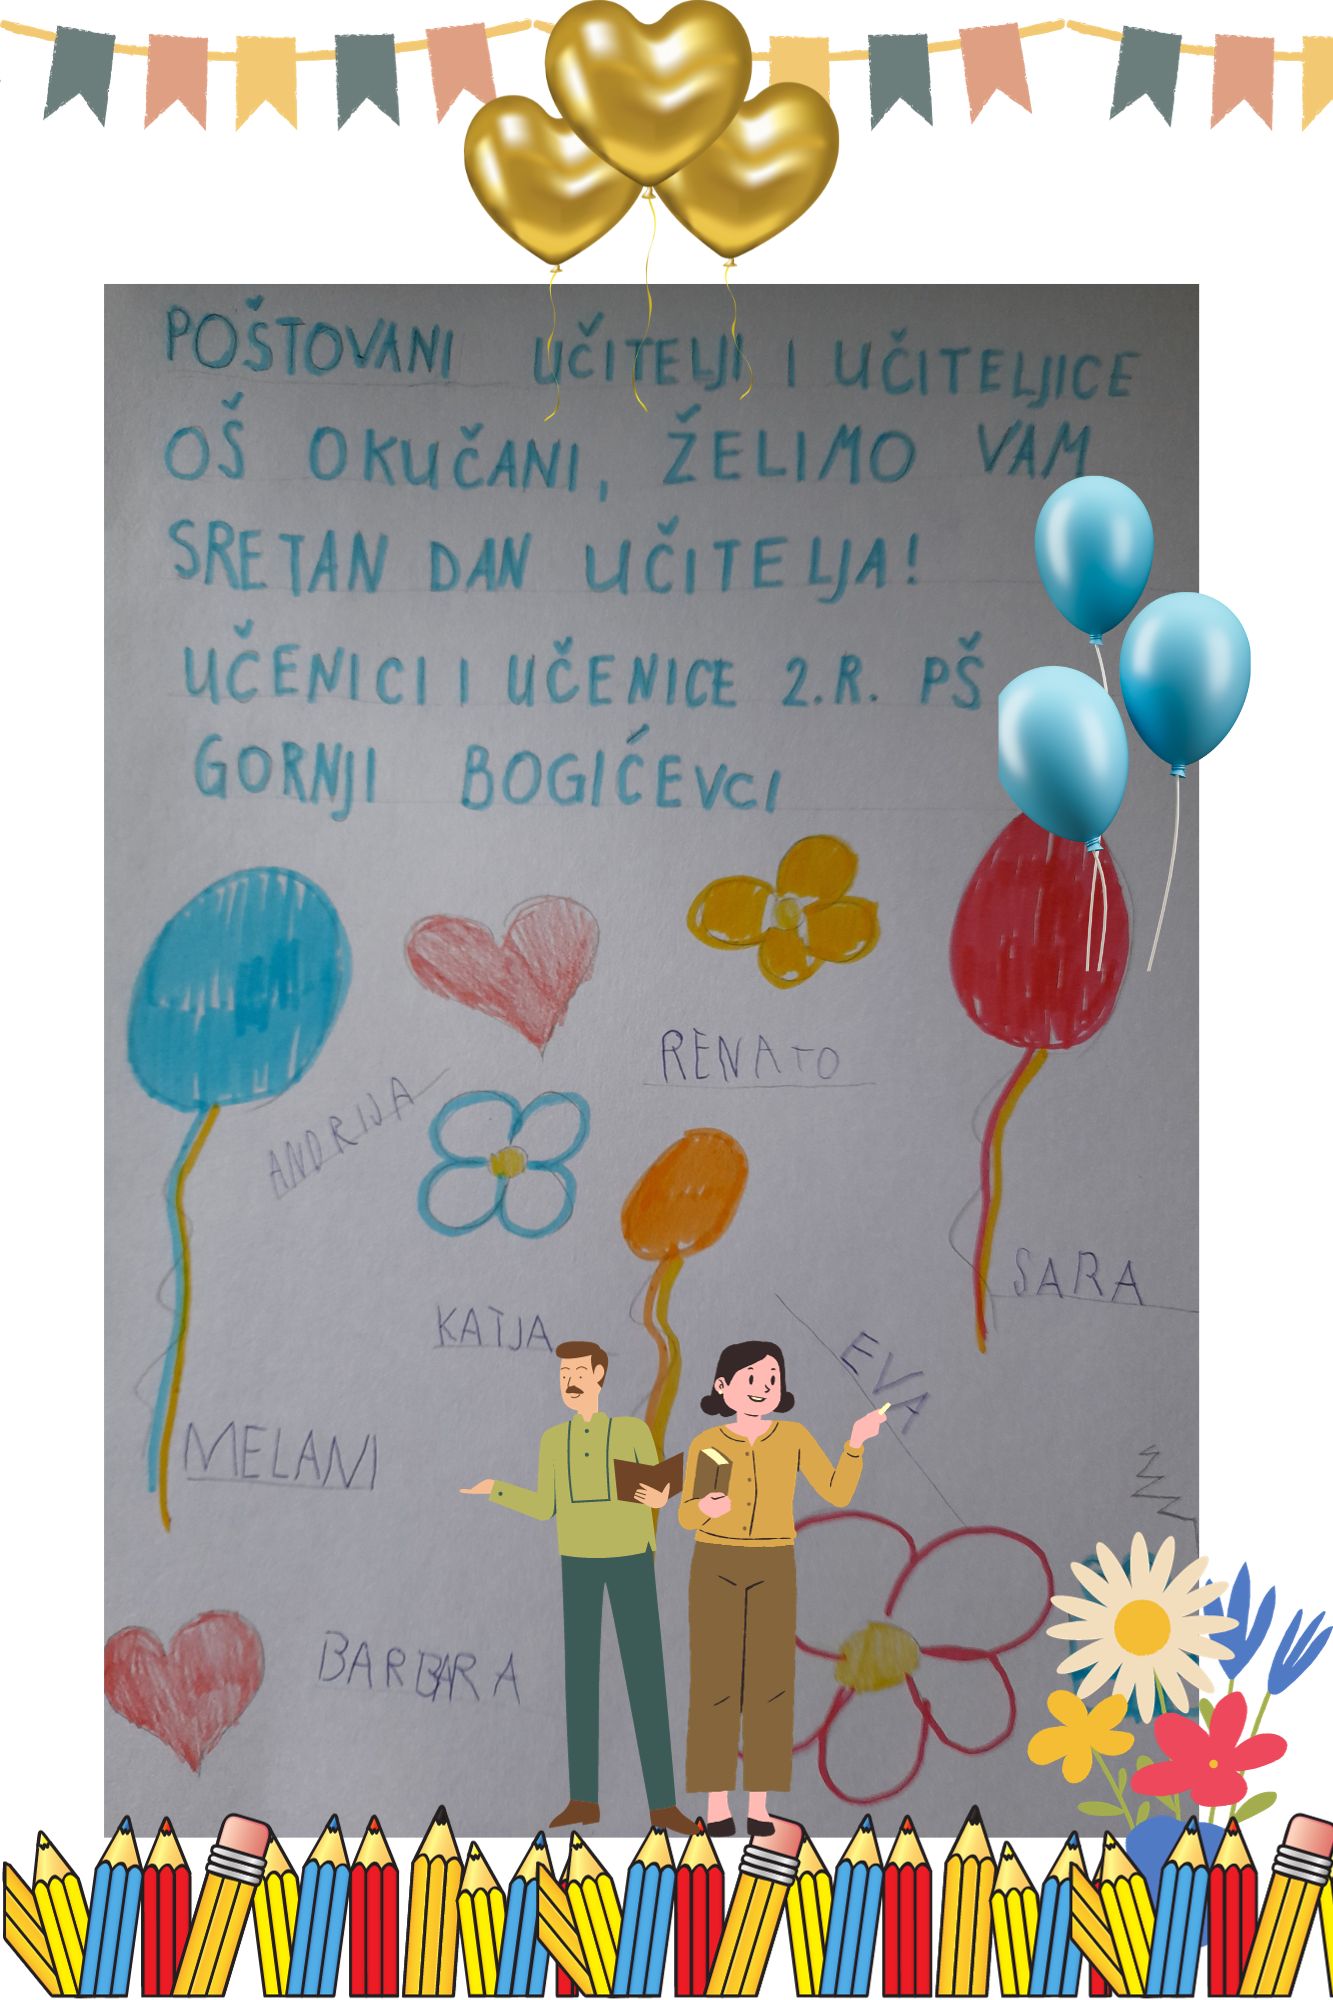 POŠTOVANI UČITELJI I UČITELJICE
OŠ OKUČANI, ŽELIMO VAM
SRETAN DAN UČITELJA!
UČENICI I UČENICE 2.R. PŠ
GORNJI BOGIĆEVCI
RENATO
ANDRIJA
SARA
KATJA
EVA
MELANI
BARBARA